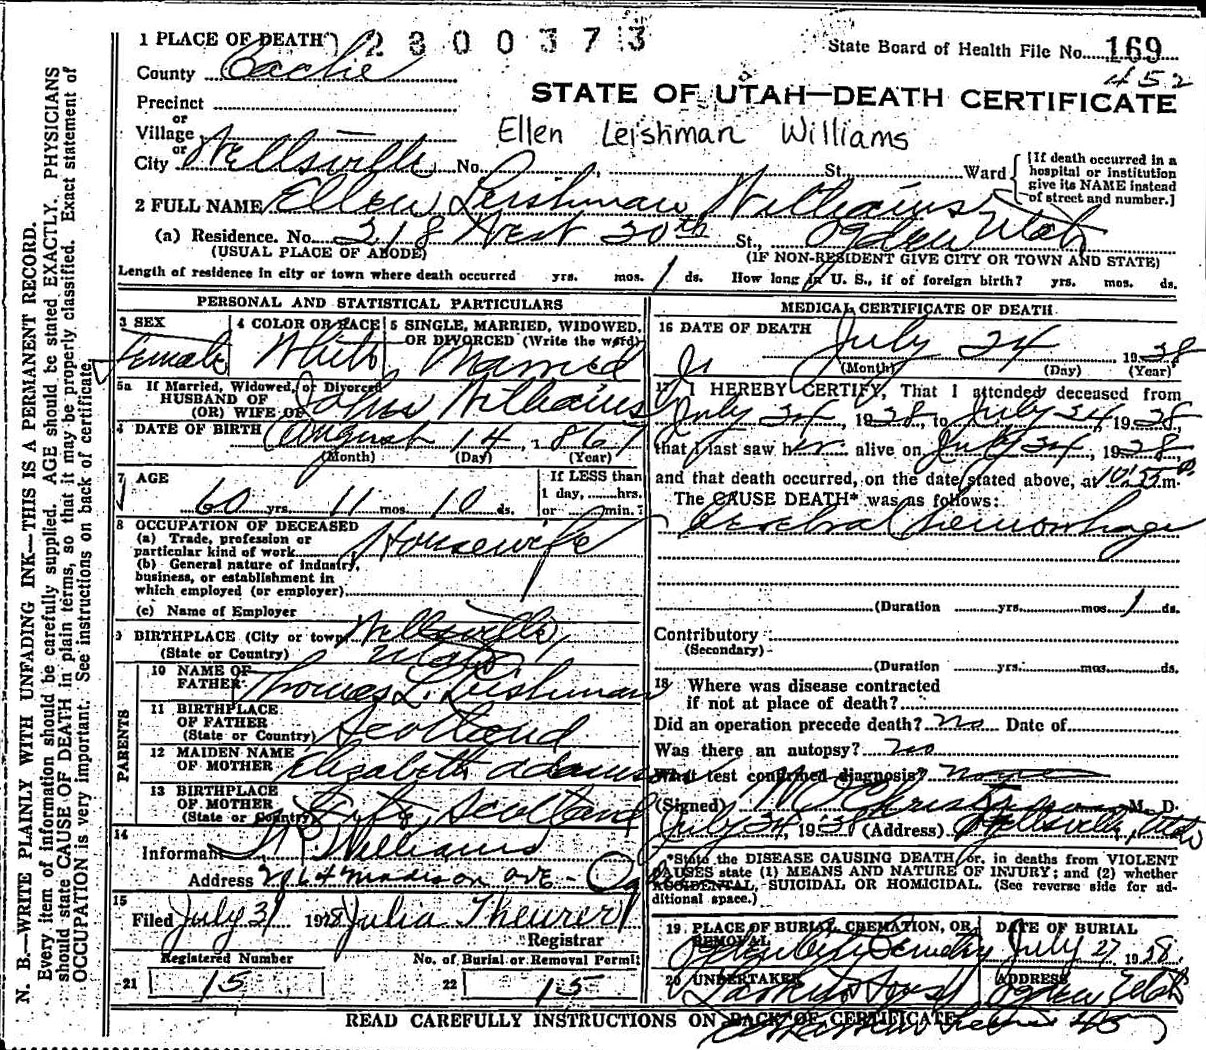 1 PLACE OF DEATH 2800373
State Board of Health File No. 169
452
County Cache
STATE OF UTAH—DEATH CERTIFICATE
Precinct
or
Village
Ellen Leishman Williams
or
City Wellsville No. St., Ward
[If death occurred in a hospital or institution give its NAME instead of street and number.]
2 FULL NAME Ellen Leishman Williams
(a) Residence. No. 218 West 30th St., Ogden Utah
(USUAL PLACE OF ABODE) (IF NON-RESIDENT GIVE CITY OR TOWN AND STATE)
Length of residence in city or town where death occurred yrs. mos. 1 ds. How long in U. S., if of foreign birth? yrs. mos. ds.
PERSONAL AND STATISTICAL PARTICULARS
3 SEX 4 COLOR OR RACE 5 SINGLE, MARRIED, WIDOWED,
OR DIVORCED (Write the word)
Female White Married
5a If Married, Widowed, or Divorced
HUSBAND OF
(OR) WIFE OF John Williams
6 DATE OF BIRTH August 14, 1867
(Month) (Day) (Year)
7 AGE If LESS than
1 day, hrs.
60 yrs. 11 mos. 10 ds. or min.?
8 OCCUPATION OF DECEASED
(a) Trade, profession or
particular kind of work Housewife
(b) General nature of industry,
business, or establishment in
which employed (or employer)
(c) Name of Employer
9 BIRTHPLACE (City or town) Wellsville,
(State or Country) Utah
PARENTS
10 NAME OF
FATHER Thomas L. Leishman
11 BIRTHPLACE
OF FATHER
(State or Country) Scotland
12 MAIDEN NAME
OF MOTHER Elizabeth Adamson
13 BIRTHPLACE
OF MOTHER
(State or Country) Fife, Scotland
14
Informant Williams
Address Madison Ave -
15
Filed July 31 1928 Julia Theurer
Registrar
Registered Number No. of Burial or Removal Permit
21 15 22 15
MEDICAL CERTIFICATE OF DEATH
16 DATE OF DEATH July 24 1928
(Month) (Day) (Year)
17 I HEREBY CERTIFY, That I attended deceased from
July 24, 1928, to July 24, 1928,
that I last saw her alive on July 24, 1928,
and that death occurred, on the date stated above, at 10:55 m.
The CAUSE DEATH* was as follows:
Cerebral hemorrhage
(Duration yrs. mos. 1 ds.
Contributory
(Secondary)
(Duration yrs. mos. ds.
18 Where was disease contracted
if not at place of death?
Did an operation precede death? no Date of
Was there an autopsy? no
What test confirmed diagnosis? none
(Signed) M. D.
July 24, 1928 (Address) Wellsville, Utah
*State the DISEASE CAUSING DEATH or, in deaths from VIOLENT
CAUSES state (1) MEANS AND NATURE OF INJURY; and (2) whether
ACCIDENTAL, SUICIDAL OR HOMICIDAL. (See reverse side for ad-
ditional space.)
19 PLACE OF BURIAL, CREMATION, OR REMOVAL DATE OF BURIAL
Ogden City Cemetery July 27 1928
20 UNDERTAKER ADDRESS
Larkin & Sons Ogden Utah
READ CAREFULLY INSTRUCTIONS ON BACK OF CERTIFICATE
N. B.—WRITE PLAINLY WITH UNFADING INK—THIS IS A PERMANENT RECORD.
Every item of information should be carefully supplied. AGE should be stated EXACTLY. PHYSICIANS
should state CAUSE OF DEATH in plain terms, so that it may be properly classified. Exact statement of
OCCUPATION is very important. See instructions on back of certificate.